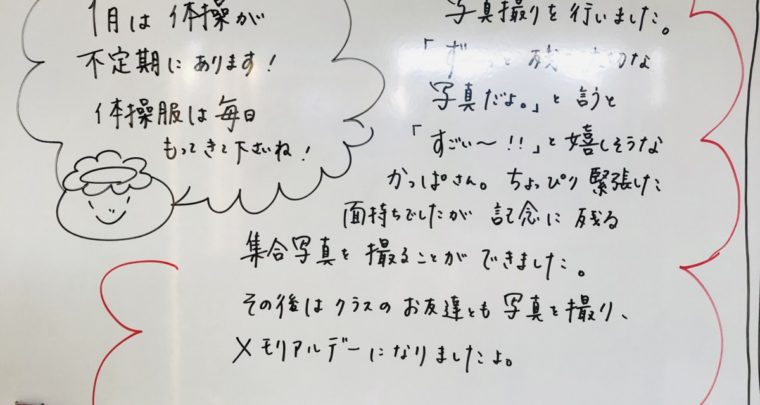 1月は 体操が
不定期に あります!
体操服は 毎日
もってきて下さいね!
写真撮りを 行いました。
「ず と 残 切な
写真だよ。」と 言うと
「すごい〜!!」と 嬉しそうな
かっぱさん。ちょっぴり 緊張した
面持ちでしたが 記念に 残る
集合写真を 撮ることが できました。
その後は クラスの お友達とも 写真を撮り、
メモリアルデーに なりましたよ。